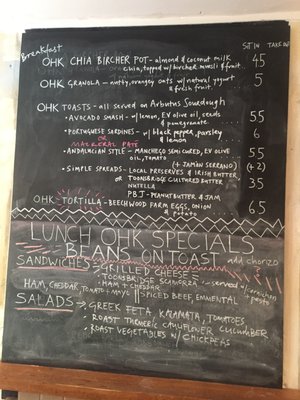 Breakfast
SIT IN TAKE OUT
OHK CHIA BIRCHER POT - almond & coconut milk 45
chia, topped w/ bircher muesli & fruit
OHK GRANOLA - nutty, orangey oats w/ natural yogurt 5
& fresh fruit
OHK TOASTS - all served on Arbutus Sourdough
• AVOCADO SMASH - w/ lemon, EV olive oil, seeds 55
& pomegranate
• PORTUGUESE SARDINES - w/ black pepper, parsley 6
or MACKERAL PATÉ & lemon
• ANDALUCIAN STYLE - MANCHEGO SEMI CURED, EV OLIVE 55
OIL, TOMATO (+ JAMÓN SERRANO) (+2)
• SIMPLE SPREADS - LOCAL PRESERVES & IRISH BUTTER
or TOONSBRIDGE CULTURED BUTTER 35
NUTELLA
PB J - PEANUT BUTTER & JAM
OHK - TORTILLA - BEECHWOOD FARM EGGS, ONION 65
& POTATO
LUNCH OHK SPECIALS
- BEANS ON TOAST add chorizo
SANDWICHES • GRILLED CHEESE
• TOONSBRIDGE SCAMORZA - served w/
• HAM + CHEDDAR + pesto
HAM, CHEDDAR, TOMATO + MAYO || SPICED BEEF, EMMENTAL
SALADS • GREEK FETA, KALAMATA, TOMATOES, CUCUMBER
• ROAST TURMERIC CAULIFLOWER
• ROAST VEGETABLES w/ CHICKPEAS